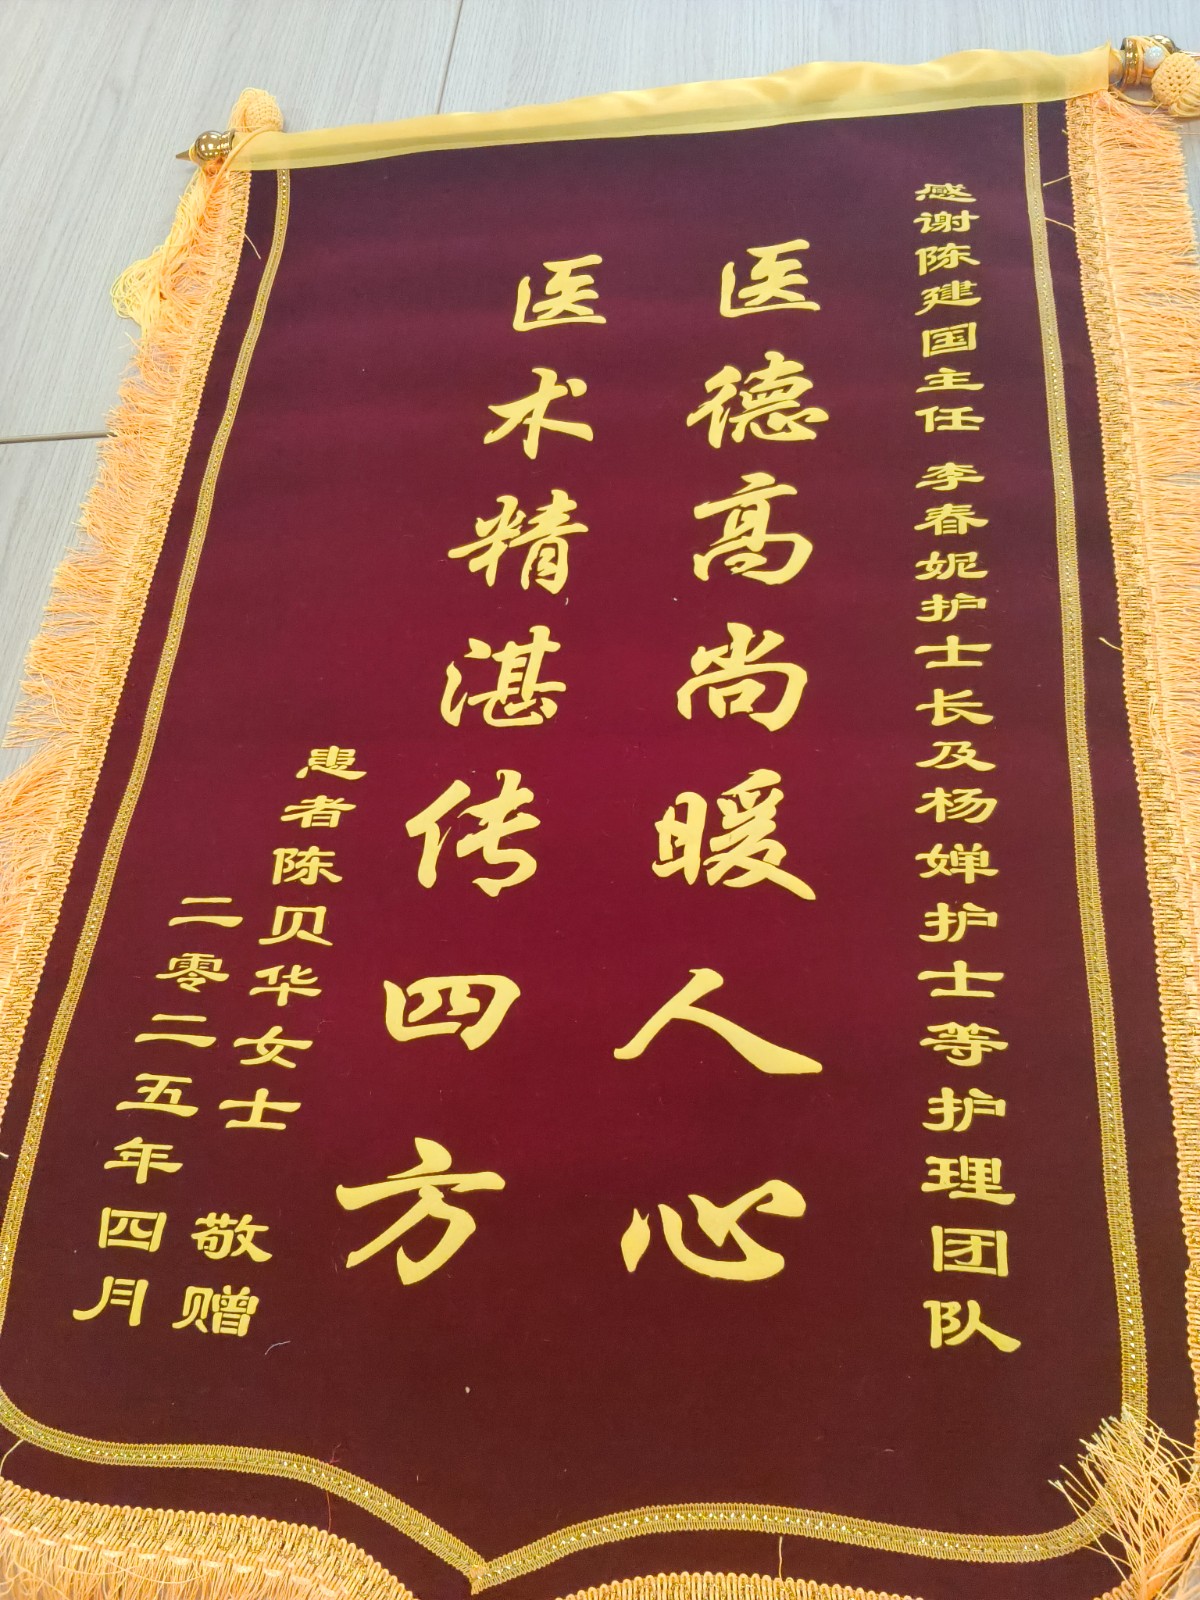 感谢陈建国主任 李春妮护士长及杨婵护士等护理团队
医德高尚暖人心
医术精湛传四方
患者陈贝华女士 敬赠
二零二五年四月